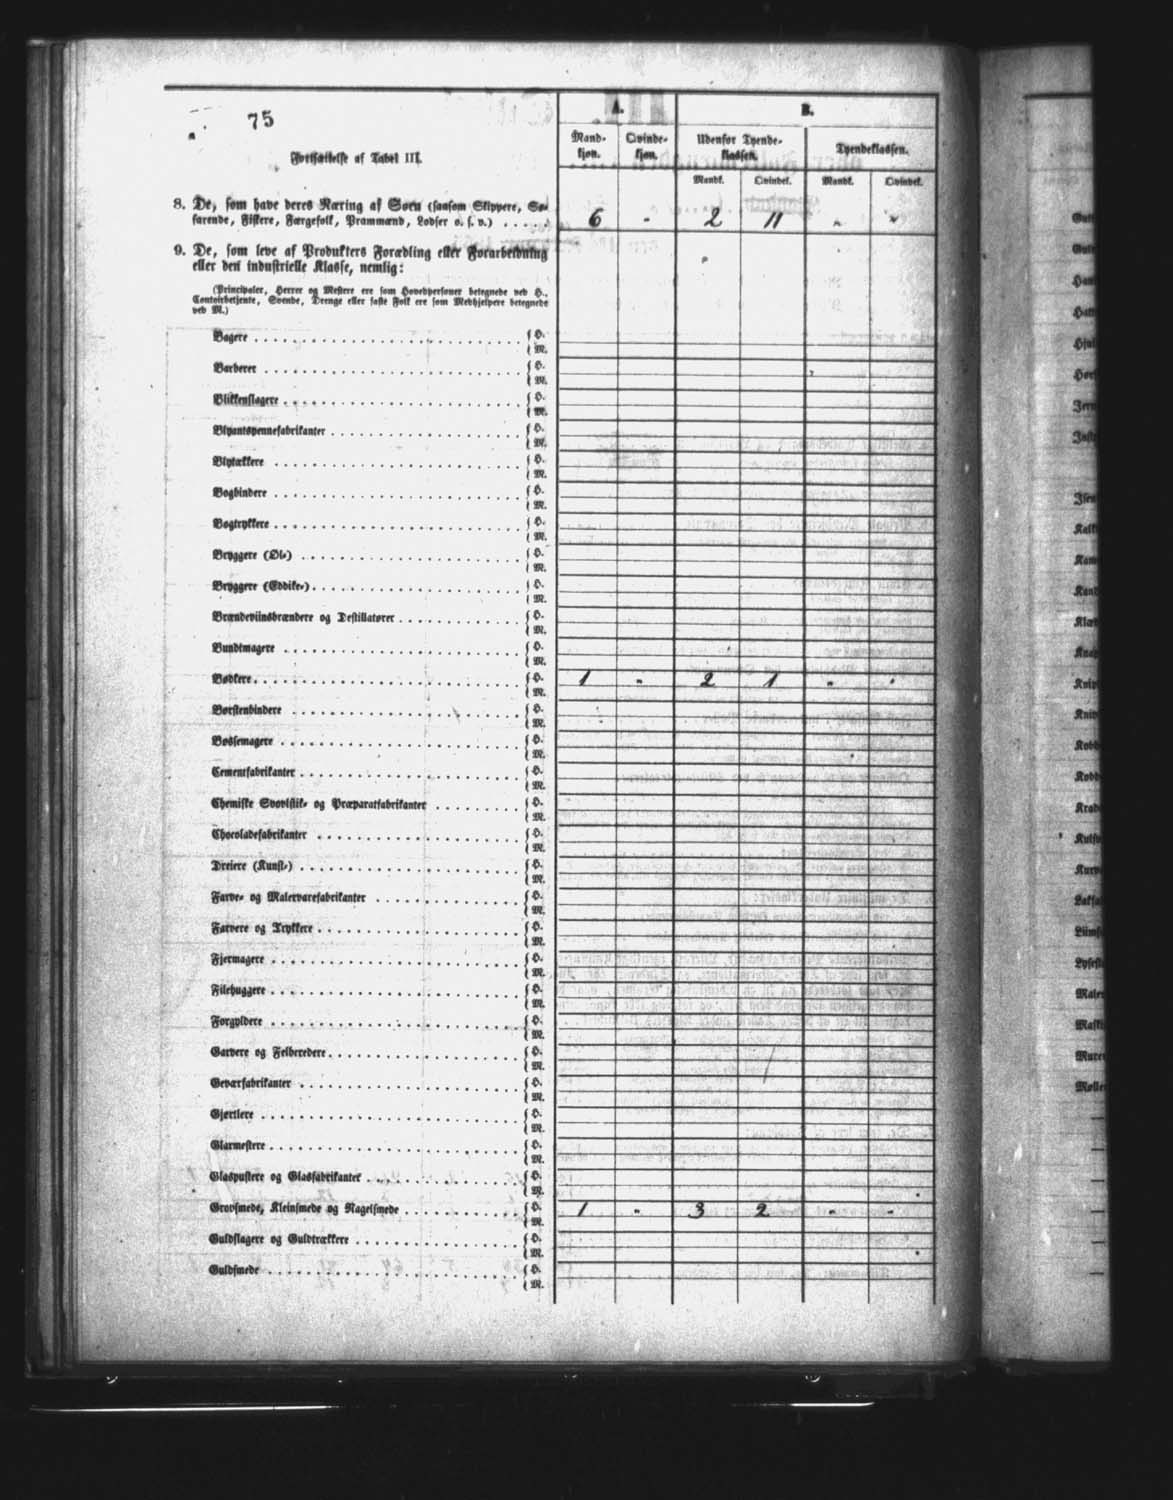 75
Fortsættelse af Tabel III.
A.
B.
Mand-
kjøn.
Qvinde-
kjøn.
Udenfor Tyende-
klassen.
Tyendeklassen.
Mandk.
Qvindek.
Mandk.
Qvindek.
8. De, som have deres Næring af Søen (saasom Skippere, Sø-
farende, Fiskere, Færgefolk, Prammænd, Lodser o. s. v.) . . . . . 6 „ 2 11 „ „
9. De, som leve af Produkters Forædling eller Forarbeidning
eller den industrielle Klasse, nemlig:
(Principaler, Herrer og Mestere ere som Hovedpersoner betegnede ved H.,
Contoirbetjente, Svende, Drenge eller faste Folk ere som Medhjelpere betegnede
ved M.)
Bagere { H.
{ M.
Barberer { H.
{ M.
Blikkenslagere { H.
{ M.
Blyantspennefabrikanter { H.
{ M.
Blytækkere { H.
{ M.
Bogbindere { H.
{ M.
Bogtrykkere { H.
{ M.
Bryggere (Øl-) { H.
{ M.
Bryggere (Eddike-) { H.
{ M.
Brændeviinsbrændere og Destillatører { H.
{ M.
Bundtmagere { H.
{ M.
Bødkere { H. 1 „ 2 1 „ „
{ M.
Børstenbindere { H.
{ M.
Bøssemagere { H.
{ M.
Cementfabrikanter { H.
{ M.
Chemiske Svovlstik- og Præparatfabrikanter { H.
{ M.
Chocoladefabrikanter { H.
{ M.
Dreiere (Kunst-) { H.
{ M.
Farve- og Malervarefabrikanter { H.
{ M.
Farvere og Trykkere { H.
{ M.
Fjermagere { H.
{ M.
Filehuggere { H.
{ M.
Forgyldere { H.
{ M.
Garvere og Felberedere { H.
{ M.
Geværfabrikanter { H.
{ M.
Gjørtlere { H.
{ M.
Glarmestere { H.
{ M.
Glaspustere og Glasfabrikanter { H.
{ M.
Grovsmede, Kleinsmede og Nagelsmede { H. 1 „ 3 2 „ „
{ M.
Guldslagere og Guldtrækkere { H.
{ M.
Guldsmede { H.
{ M.